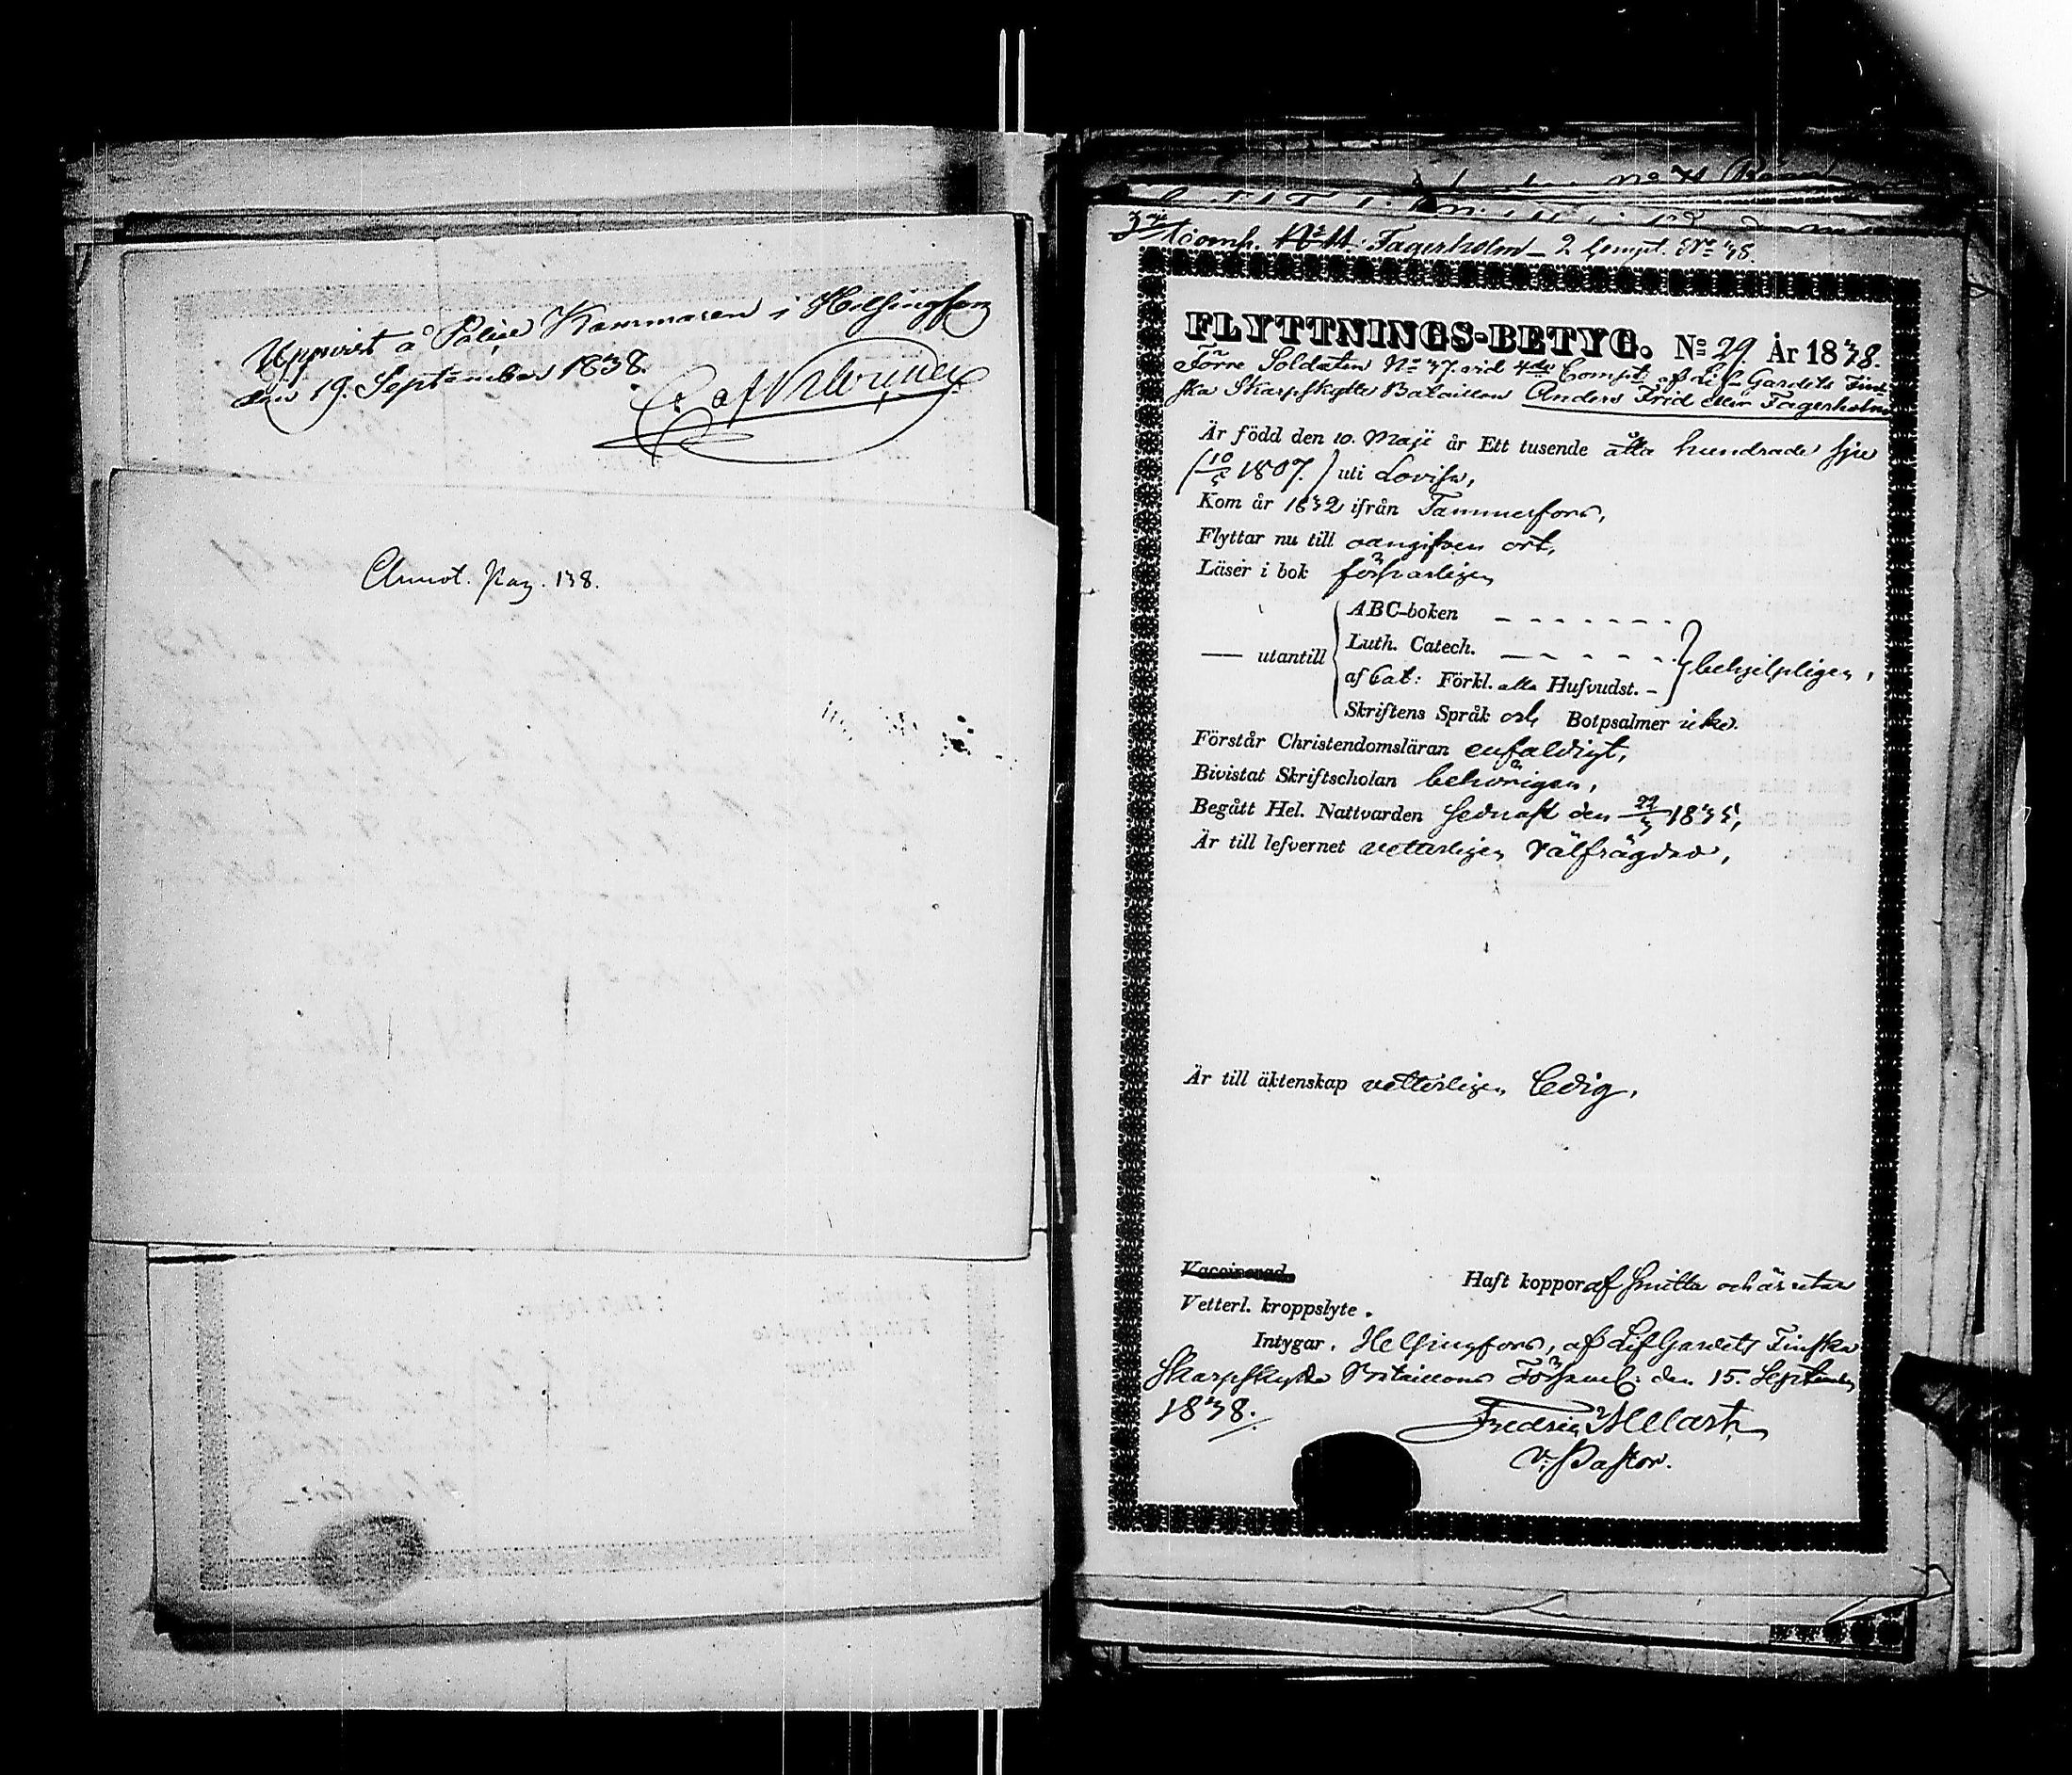 Uppvist å Police Kammaren i Helsingfors
den 19. September 1838.
Annot. Pag. 138.
Comp. Fagerholm – 2 Compt. No 38.
FLYTTNINGS-BETYG. No 29. År 1838.
Förre Soldaten No 37. vid 4de Compt. af Lif-Gardets Fin-
ska Skarpskytte Bataillon Anders Frid eller Fagerholm
Är född den 10. Maji år Ett tusende åtta hundrade sju
(10/5 1807.) uti Lovisa,
Kom år 1832 ifrån Tammerfors,
Flyttar nu till oangifven ort,
Läser i bok försvarligen
ABC-boken
Luth. Catech.
— utantill
behjelpligen,
af Cat: Förkl. alla Hufvudst. –
Skriftens Språk och Botpsalmer icke.
Förstår Christendomsläran enfaldigt,
Bivistat Skriftscholan behörigen,
Begått Hel. Nattvarden sednast den 22/3 1835,
Är till lefvernet vetterligen välfrägdad,
Är till äktenskap vetterligen Ledig.
Vaccinerad. Haft koppor af smitta och är utan
Vetterl. kroppslyte.
Intygar, Helsingfors, af Lif Gardets Finska
Skarpskytte Bataillons Församl: den 15. September
1838.
V. Pastor.